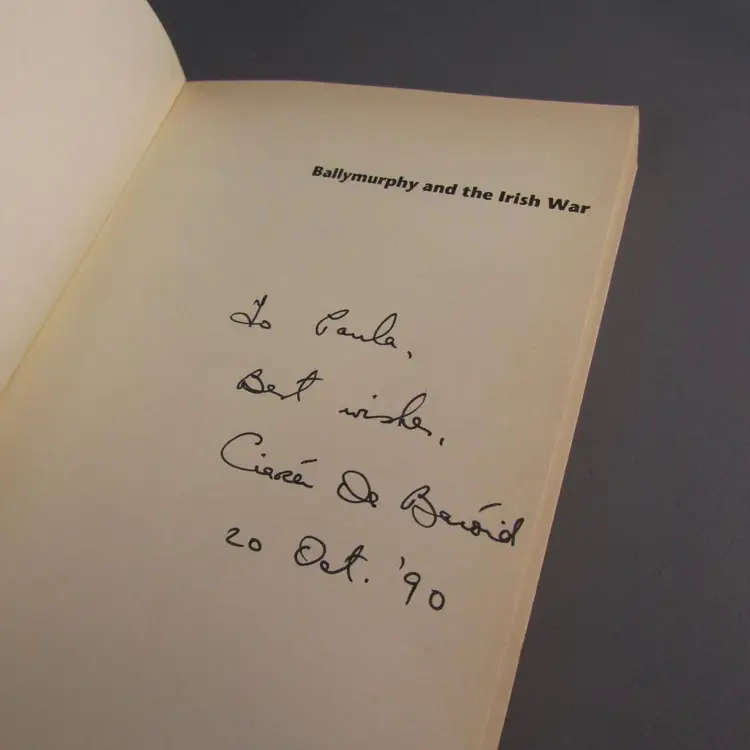 Ballymurphy and the Irish War
To Paula,
Best wishes,
Ciarán De Baróid
20 Oct. '90